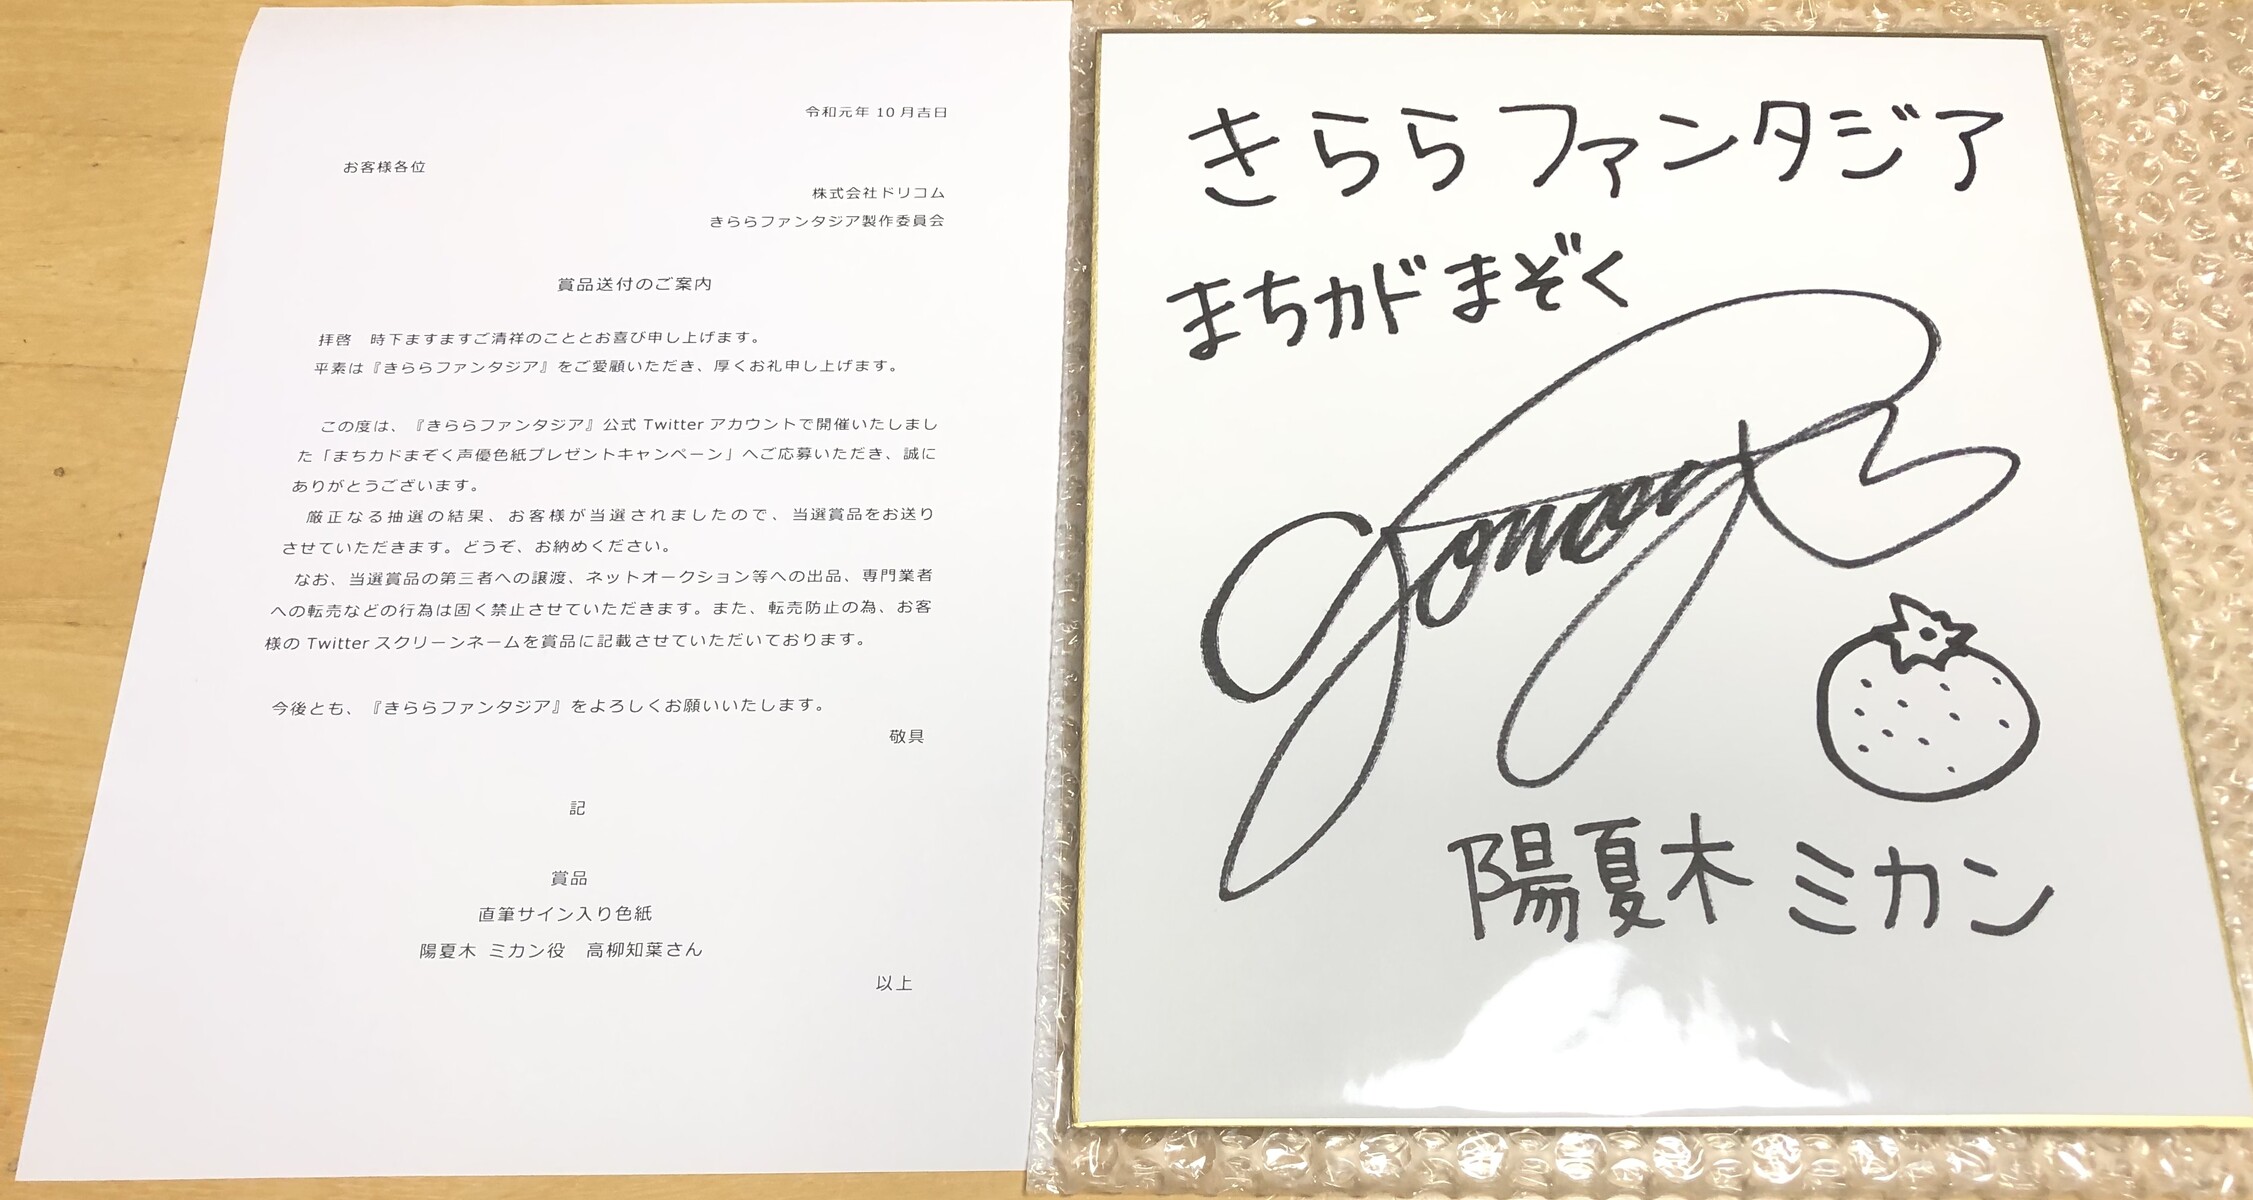 令和元年 10 月吉日
お客様各位
株式会社ドリコム
きららファンタジア製作委員会
賞品送付のご案内
拝啓　時下ますますご清祥のこととお喜び申し上げます。
平素は『きららファンタジア』をご愛顧いただき、厚くお礼申し上げます。
この度は、『きららファンタジア』公式 Twitter アカウントで開催いたしまし
た「まちカドまぞく声優色紙プレゼントキャンペーン」へご応募いただき、誠に
ありがとうございます。
厳正なる抽選の結果、お客様が当選されましたので、当選賞品をお送り
させていただきます。どうぞ、お納めください。
なお、当選賞品の第三者への譲渡、ネットオークション等への出品、専門業者
への転売などの行為は固く禁止させていただきます。また、転売防止の為、お客
様の Twitter スクリーンネームを賞品に記載させていただいております。
今後とも、『きららファンタジア』をよろしくお願いいたします。
敬具
記
賞品
直筆サイン入り色紙
陽夏木 ミカン役　高柳知葉さん
以上
きららファンタジア
まちカドまぞく
陽夏木 ミカン